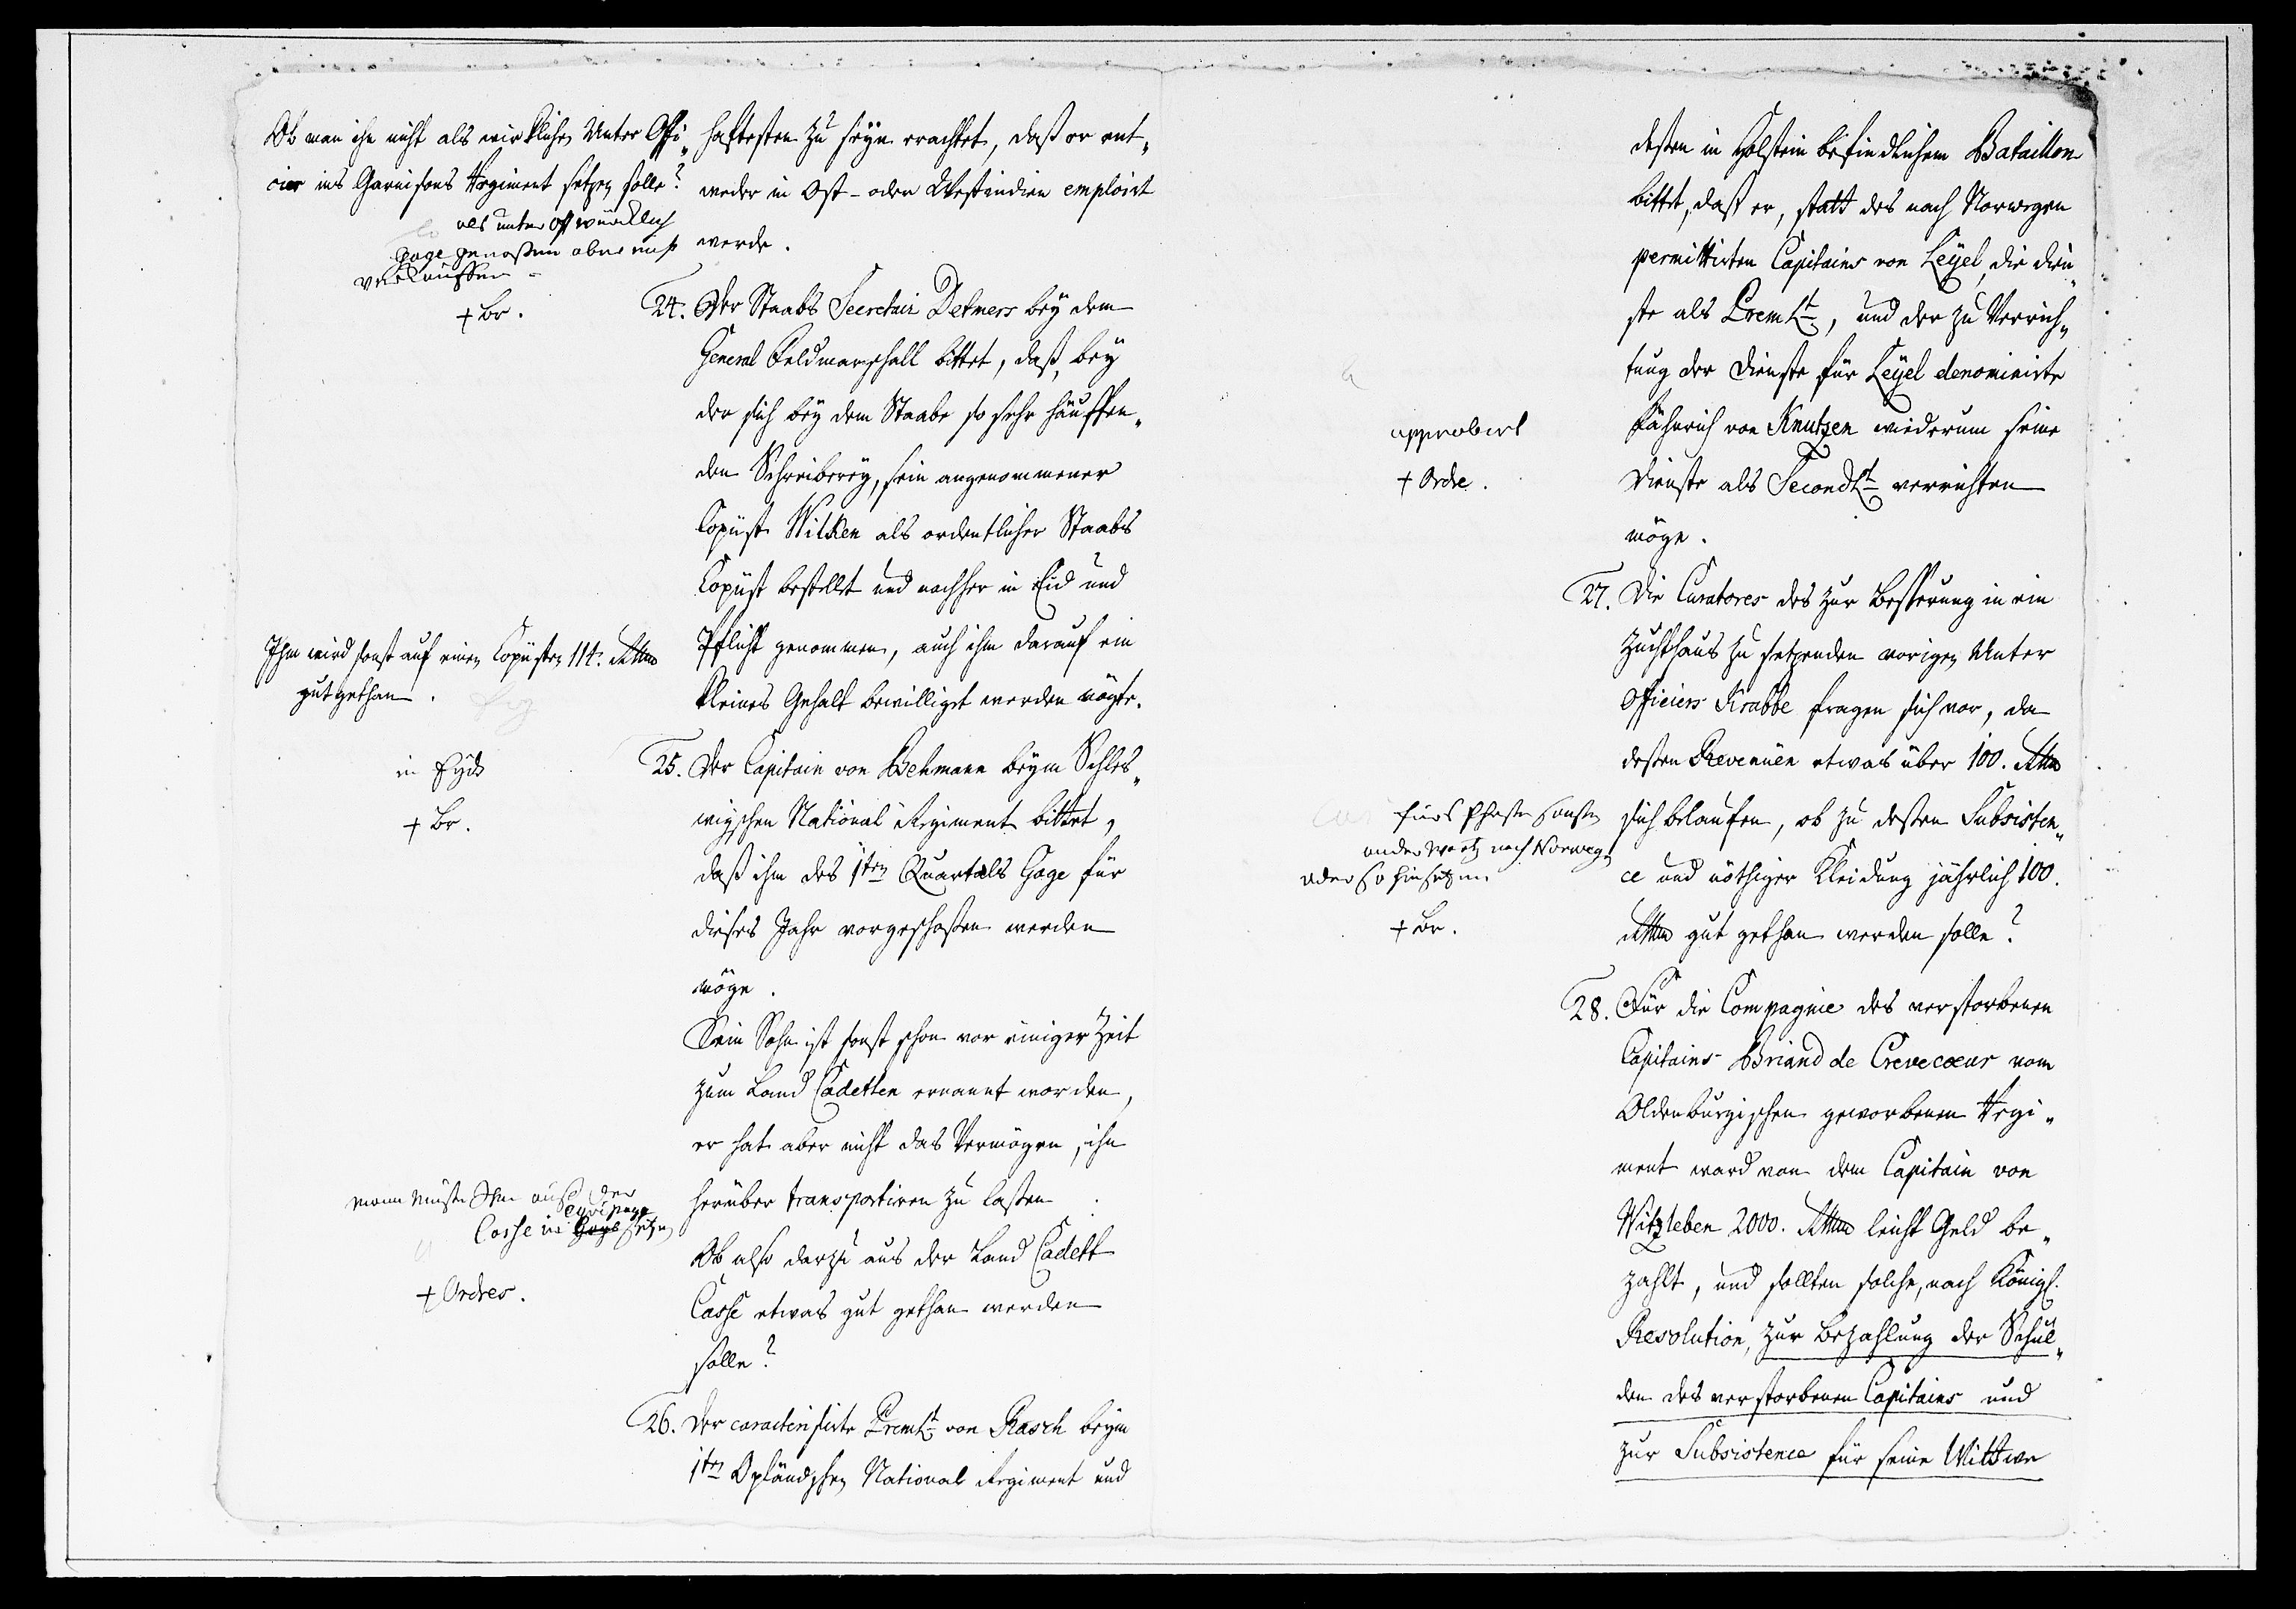 Ob man ihn nicht als wirklichen Unter Offi„
cier ins Garnisons Regiment setzen solle?
als unter off würcklich
gage genossen aber
+ Br.
haftesten zu seyn erachtet, daß er ent„
weder in Ost- oder Westindien emploirt
werde.
24. Der Staabs Secretair Detmers bey dem
General Feldmarschall bittet, daß, bey
der sich bey dem Staabe so sehr häuffen„
den Schreiberey, sein angenommener
Copiist Wilken als ordentlicher Staabs
Copiist bestellt und nachher in Eid und
Pflicht genommen, auch ihm darauf ein
kleines Gehalt bewilliget werden mögte.
Ihm wird sonst auf einen Copiisten 114. Rthlr
gut gethan.
25. Der Capitain von Behmann beym Schles„
wigschen National Regiment bittet,
daß ihm des 1ten Quartals Gage für
dieses Jahr vorgeschossen werden
möge.
in Eyd
+ Br.
Sein Sohn ist sonst schon vor einiger Zeit
zum Land Cadetten ernannt worden,
er hat aber nicht das Vermögen, ihn
herüber transportiren zu lassen.
Ob also darzu aus der Land Cadett
Casse etwas gut gethan werden
solle?
mann müste Ihm auß der
Casse in equipage setzen
+ Ordres.
26. Der caracterisirte PremLt von Rasch beym
1ten Opländschen National Regiment und
dessen in Holstein befindlichem Bataillon
bittet, daß er, statt des nach Norwegen
permittirten Capitains von Leyel, die Dien„
ste als PremLt, und der zu Verrich„
tung der Dienste für Leyel denominirte
Fähnrich von Knutzen wiederum seine
Dienste als SecondLt verrichten
möge.
approbirt
+ Ordre.
27. Die Curatores des zur Besserung in ein
Zuchthaus zu setzenden vorigen Unter
Officiers Krabbe fragen sich vor, da
dessen Revenüen etwas über 100. Rthlr
sich belaufen, ob zu dessen Subsisten„
ce und nöthiger Kleidung jährlich 100.
Rthlr gut gethan werden solle?
fürs sonsten
ander wertz nach Norwegn
oder so hinsetzen
+ Br.
28. Für die Compagnie des verstorbenen
Capitains Briand de Crevecœur vom
Oldenburgischen geworbenen Regi„
ment ward von dem Capitain von
Witzleben 2000. Rthlr leicht Geld be„
zahlt, und sollten solche, nach Königl.
Resolution, zur Bezahlung der Schul„
den des verstorbenen Capitains und
zur Subsistence für seine Wittwe